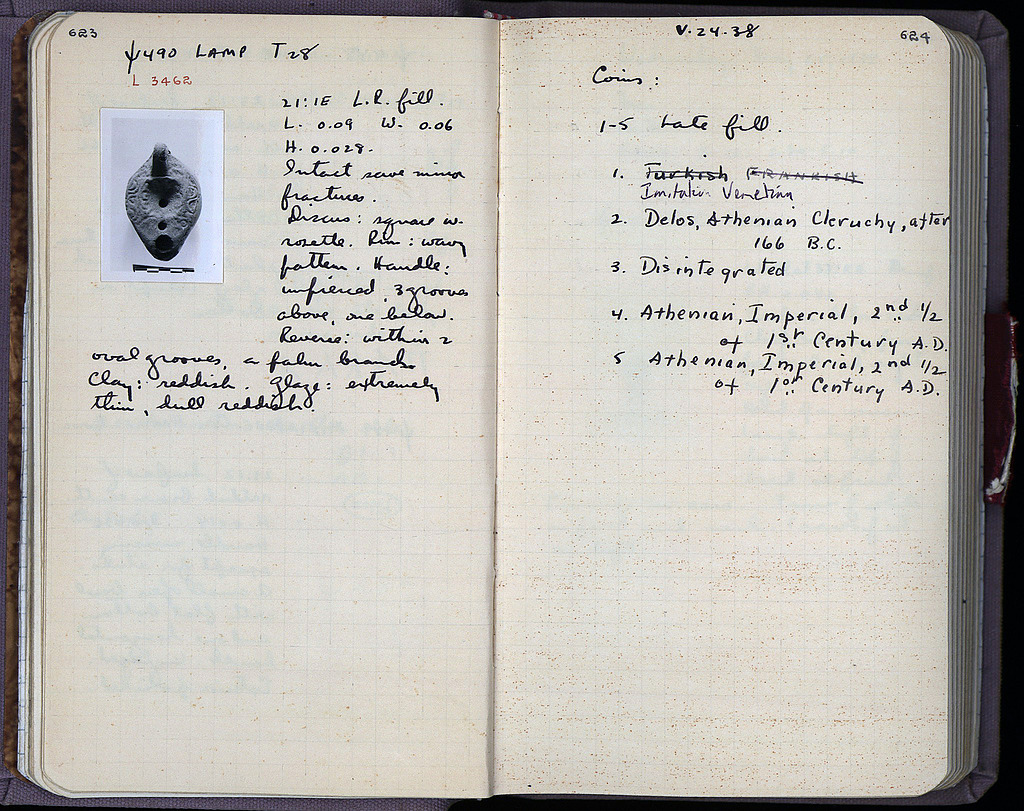 623
Ψ490 LAMP T28
L 3462
21:1E L.R. fill.
L. 0.09 W. 0.06
H. 0.028.
Intact save minor
fractures.
Discus: square w.
rosette. Rim: wavy
pattern. Handle:
unpierced, 3 grooves
above, one below.
Reverse: within 2
oval grooves, a palm branch.
Clay: reddish. Glaze: extremely
thin, dull reddish.
V-24-38
624
Coins:
1-5 Late fill.
1. Turkish FRANKISH
Imitation Venetian
2. Delos, Athenian Cleruchy, after
166 B.C.
3. Disintegrated
4. Athenian, Imperial, 2nd 1/2
of 1st Century A.D.
5 Athenian, Imperial, 2nd 1/2
of 1st Century A.D.